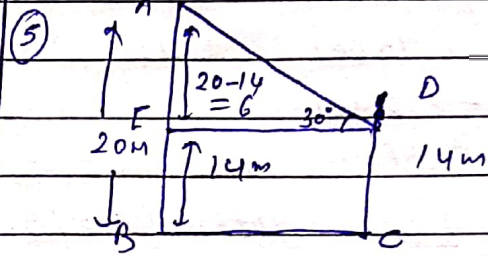 A
5
20-14
= 6
D
E
30°
20M
14m
14m
B
C